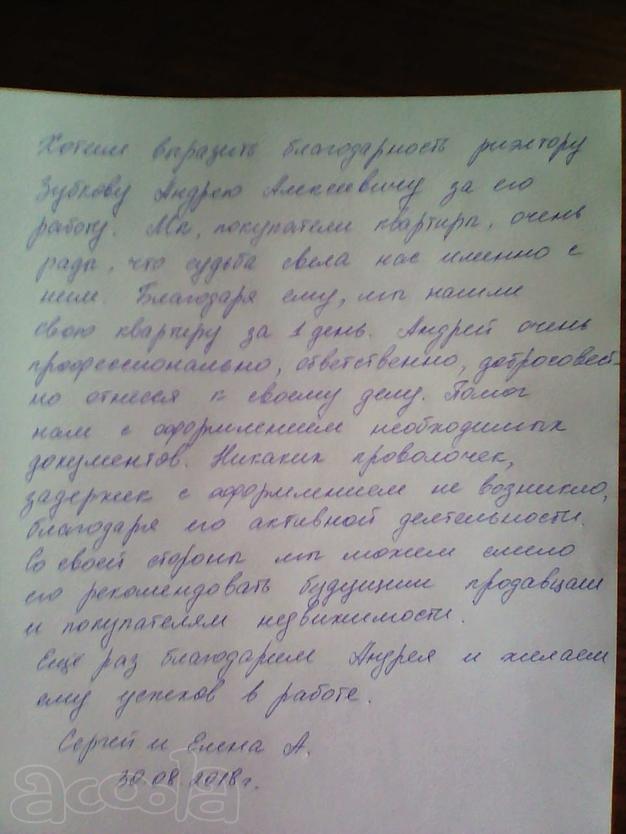 Хотим выразить благодарность риэлтору
Зубкову Андрею Алексеевичу за его
работу. Мы, покупатели квартиры, очень
рады, что судьба свела нас именно с
ним. Благодаря ему, мы нашли
свою квартиру за 1 день. Андрей очень
профессионально, ответственно, добросовест-
но отнёсся к своему делу. Помог
нам с оформлением необходимых
документов. Никаких проволочек,
задержек с оформлением не возникло,
благодаря его активной деятельности.
Со своей стороны мы можем смело
его рекомендовать будущим продавцам
и покупателям недвижимости.
Ещё раз благодарим Андрея и желаем
ему успехов в работе.
Сергей и Елена А.
30.08.2018г.
acoola